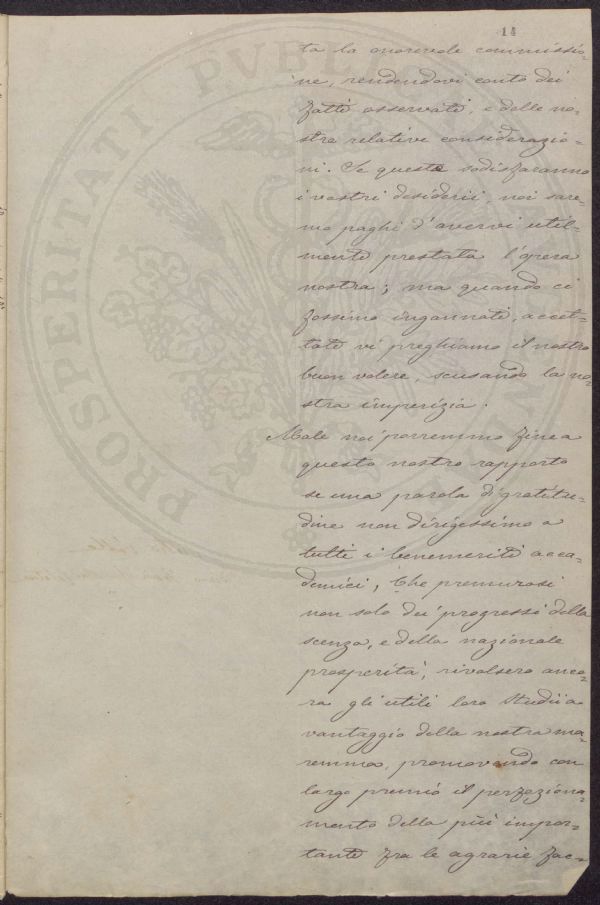 14
ta la onorevole commissio=
ne, rendendovi conto dei
fatti osservati, e delle no=
stre relative considerazio=
ni. Se queste sodisfaranno
i vostri desiderii, noi sare=
mo paghi d'avervi util=
mente prestata l'opera
nostra; ma quando ci
fossimo ingannati, accet=
tate vi preghiamo il nostro
buon volere, scusando la no=
stra imperizia.
Male noi porremmo fine a
questo nostro rapporto
se una parola di gratitu=
dine non dirigessimo a
tutti i benemeriti acca=
demici, che premurosi
non solo dei progressi della
scenza, e della nazionale
prosperità, rivolsero anco=
ra gli utili loro studii a
vantaggio della nostra ma=
remma, promovendo con
largo premio il perfeziona=
mento della più impor=
tante fra le agrarie fac=
PROSPERITATI PVBLI